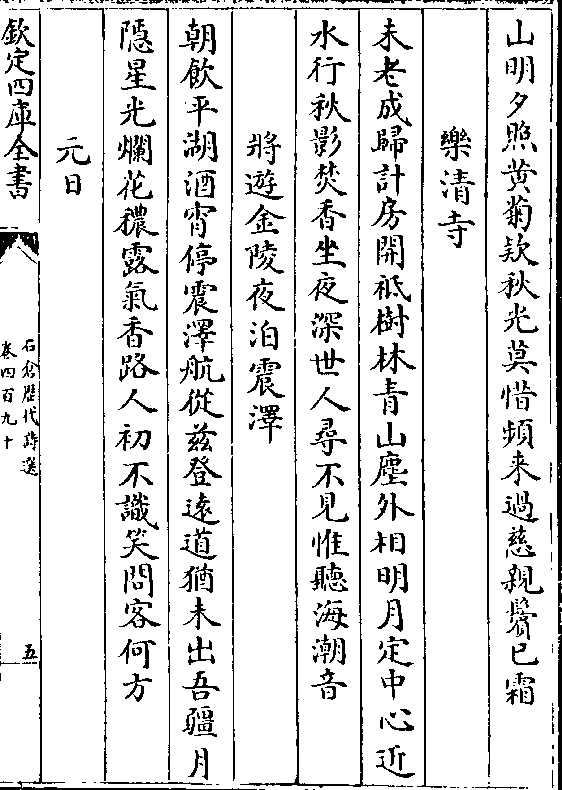 山明夕照黄菊欵秋光莫惜頻来過慈親鬢已霜
樂清寺
未老成歸計房開祗樹林青山塵外相明月定中心近
水行秋影焚香坐夜深世人尋不見惟聽海潮音
將遊金陵夜泊震澤
朝飲平湖酒宵停震澤航從兹登逺道猶未出吾疆月
隠星光爛花穠露氣香路人初不識笑問客何方
元日
欽定四庫全書
石倉歴代詩選
卷四百九十
五